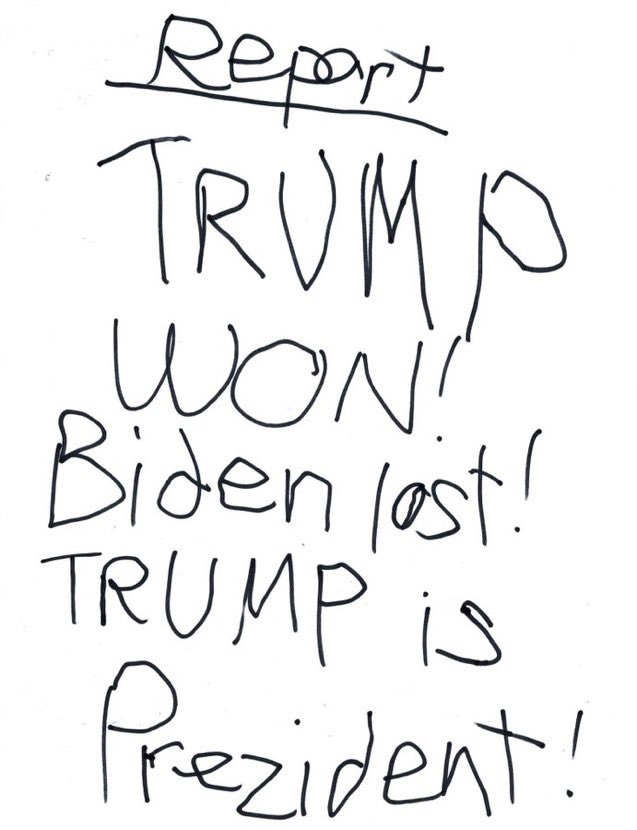 Report
TRUMP
WON!
Biden lost!
TRUMP is
Prezident!